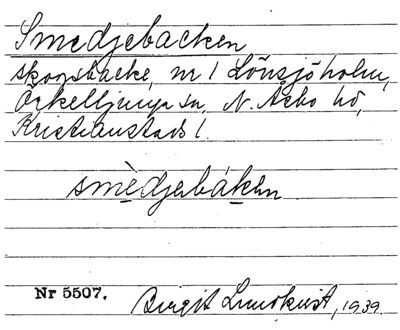 Smedjebacken
skogsbacke, nr 1 Lönsjöholm,
Örkelljunga sn, N. Åsbo hd,
Kristianstads l.
smèdjebákен
Nr 5507.
Birgit Lundkvist, 1939.